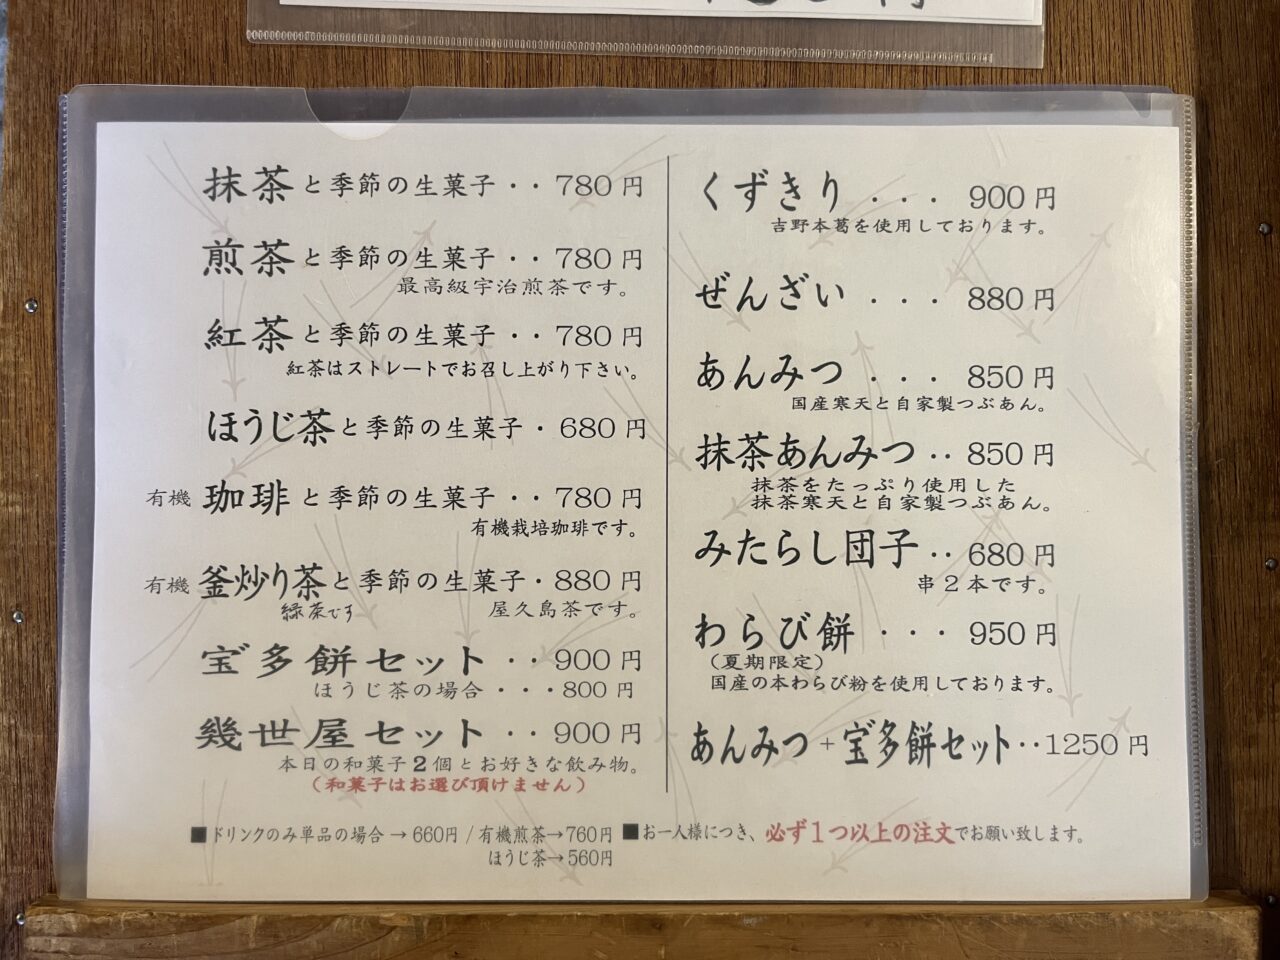 抹茶と季節の生菓子・・780円
煎茶と季節の生菓子・・780円
最高級宇治煎茶です。
紅茶と季節の生菓子・・780円
紅茶はストレートでお召し上がり下さい。
ほうじ茶と季節の生菓子・680円
有機 珈琲と季節の生菓子・・780円
有機栽培珈琲です。
有機 釜炒り茶と季節の生菓子・880円
緑茶です 屋久島茶です。
宝多餅セット・・900円
ほうじ茶の場合・・・800円
幾世屋セット・・900円
本日の和菓子2個とお好きな飲み物。
(和菓子はお選び頂けません)
くずきり・・・900円
吉野本葛を使用しております。
ぜんざい・・・880円
あんみつ・・・850円
国産寒天と自家製つぶあん。
抹茶あんみつ・・850円
抹茶をたっぷり使用した
抹茶寒天と自家製つぶあん。
みたらし団子・・680円
串2本です。
わらび餅・・・950円
(夏期限定)
国産の本わらび粉を使用しております。
あんみつ+宝多餅セット・・1250円
■ドリンクのみ単品の場合→660円/有機煎茶→760円
ほうじ茶→560円
■お一人様につき、必ず1つ以上の注文でお願い致します。